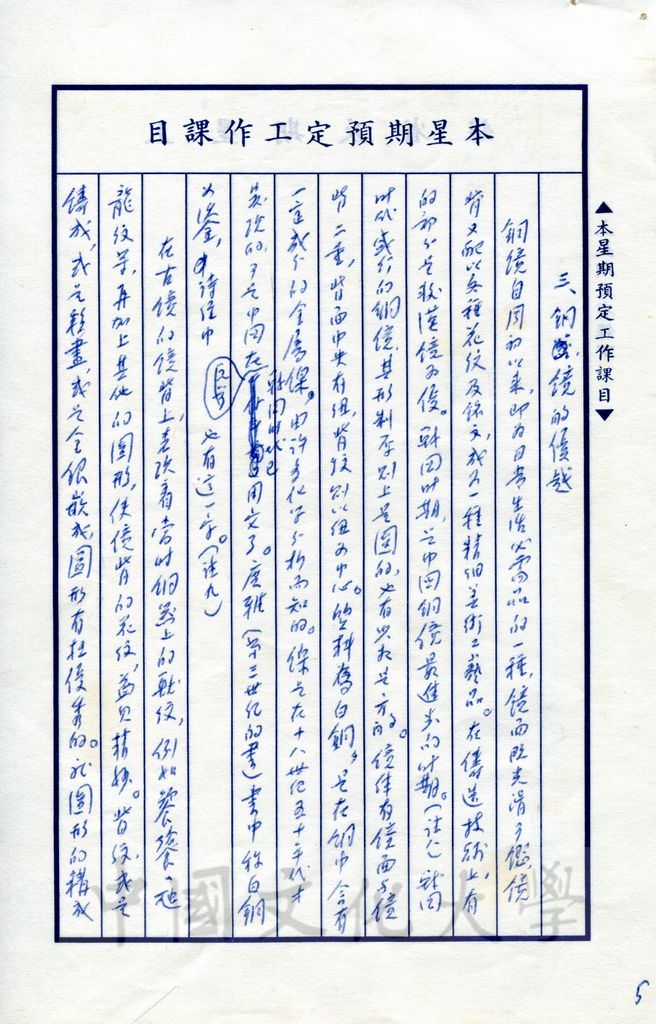 本星期預定工作課目
▲本星期預定工作課目▼
三、銅鏡的優越
銅鏡自周初以來,即為日常生活必需品的一種,鏡面既光滑可鑑,鏡
背又配以各種花紋及銘文,成為一種精細美術工藝品。在鑄造技術上,有
的部分是較漢鏡為優。戰國時期,是中國銅鏡最進步的時期。(註八)戰國
時代盛行的銅鏡,其形制原則上是圓的,也有少數是方的。鏡体有鏡面與鏡
背二重,背面中央有鈕,背紋則以鈕為中心。質料為白銅,是在銅中含有
一定成分的金屬鎳。由許多化學分析而知的。鎳是在十八世紀五十年代才
發現的,可是中國在戰國時代已用文了。廣雅(第三世紀的書)書中称白銅
為鋈,詩經中也有這一字。(註九)
在古鏡的鏡背上,表現着當時銅器上的獸紋,例如饕餮、
龍紋等,再加上其他的圖形,使鏡背的花紋,益見精妙。背紋或是
鑄成,或是彩畫,或是金銀嵌成,圖形有極優秀的。就圖形的構成
中國文化大學
5